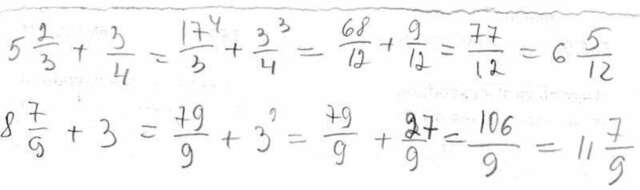 5 2/3 + 3/4 = 17⁴/3 + 3³/4 = 68/12 + 9/12 = 77/12 = 6 5/12
8 7/9 + 3 = 79/9 + 3⁹ = 79/9 + 27/9 = 106/9 = 11 7/9